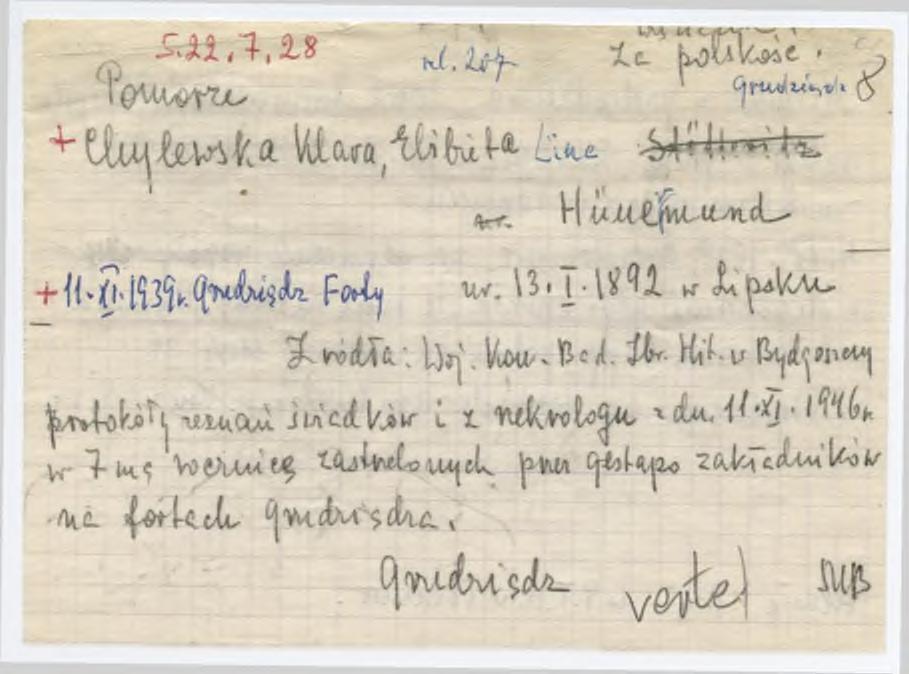 5.22.7.28
rel. 207
za polskość.
Pomorze
Grudziądz 8
+ Chylewska Klara, Elżbieta Line
Hünermund
+ 11.XI.1939r. Grudziądz Forty
ur. 13.I.1892 w Lipsku
Źródła: Woj. Kom. Bad. Zbr. Hit. w Bydgoszczy
protokóły zeznań świadków i z nekrologu z dn. 11.XI.1946r
w 7mą rocznicę zastrzelonych przez gestapo zakładników
na fortach Grudziądza.
Grudziądz
vertel